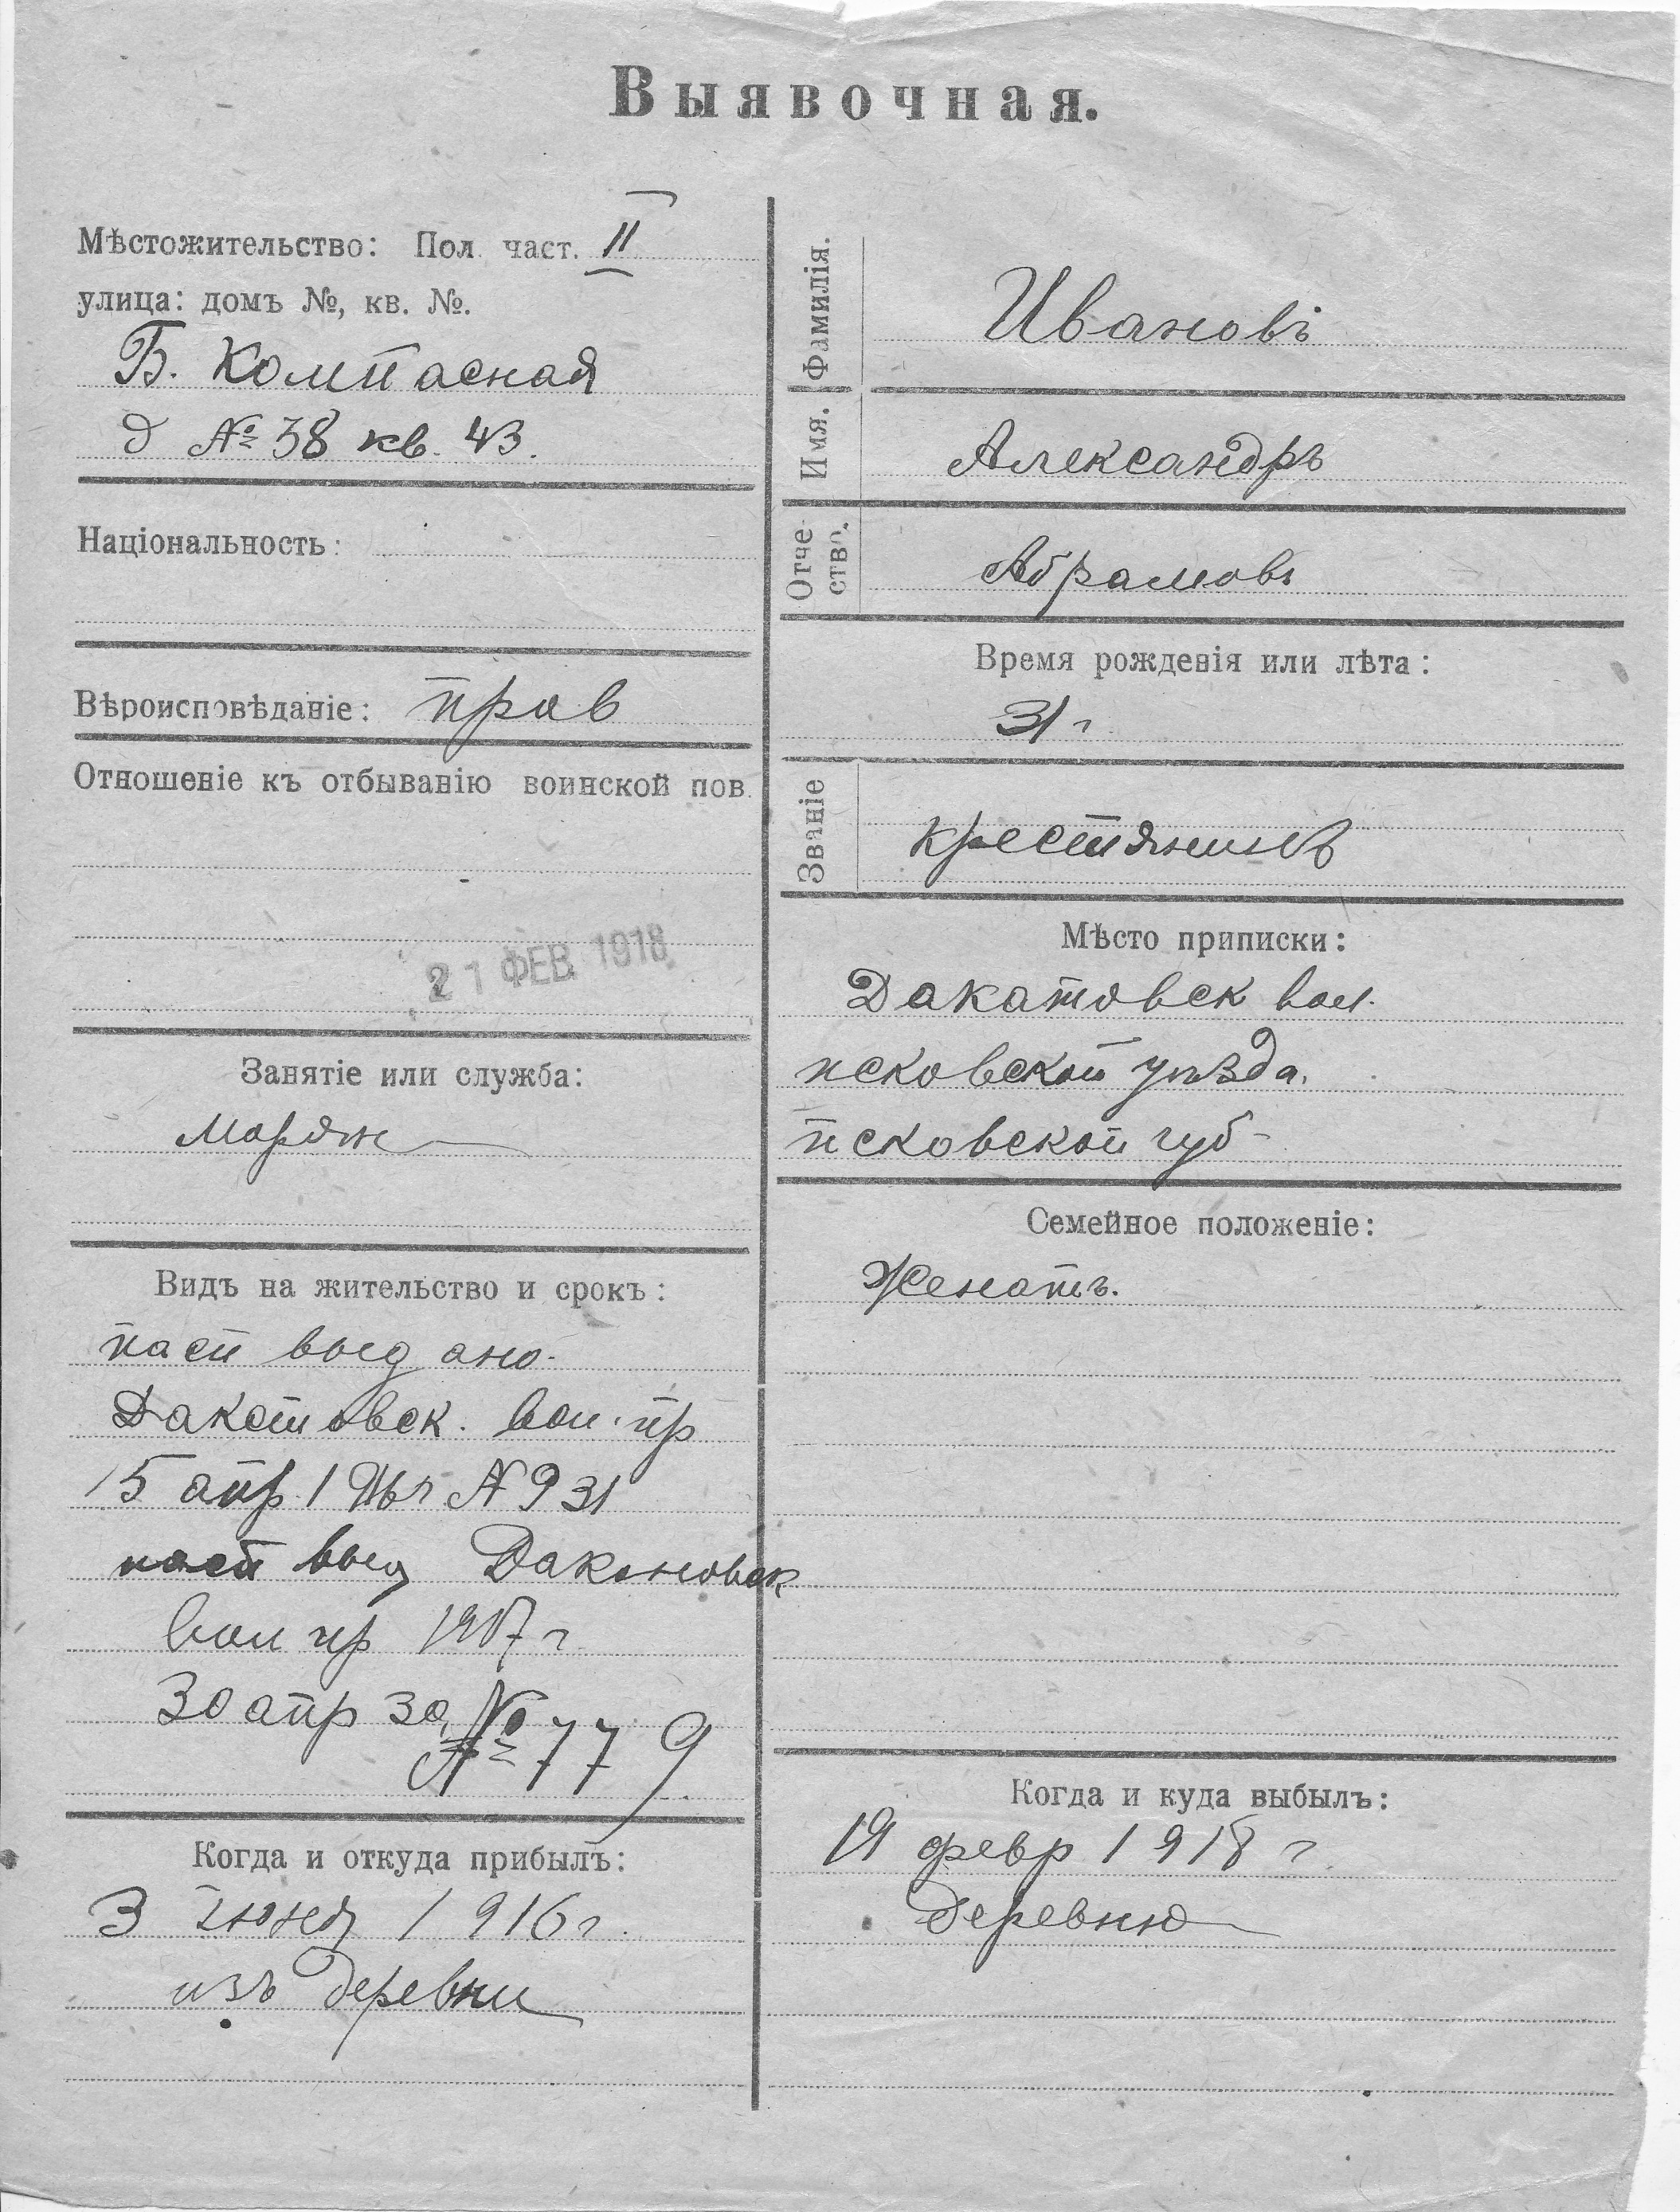 Выявочная.
Мѣстожительство: Пол. част. II
улица: домъ №, кв. №.
Б. Компасная
д № 38 кв. 43.
Національность:
Вѣроисповѣданіе: прав
Отношеніе къ отбыванію воинской пов.
21 ФЕВ. 1918
Занятіе или служба:
Видъ на жительство и срокъ:
пасп выд ано.
вол. пр
15 апр. № 931
пасп выд
вол пр 1917 г
30 апр за №
№ 779
Когда и откуда прибылъ:
3 Іюня 1916 г.
изъ деревни
Фамилія.
Ивановъ
Имя.
Александръ
Отче-
ство.
Абрамовъ
Время рожденія или лѣта:
31 г
Званіе
крестянинъ
Мѣсто приписки:
Докатовск вол.
псковской уѣзда.
псковской губ
Семейное положеніе:
Женатъ.
Когда и куда выбылъ:
19 февр 1918 г.
деревню